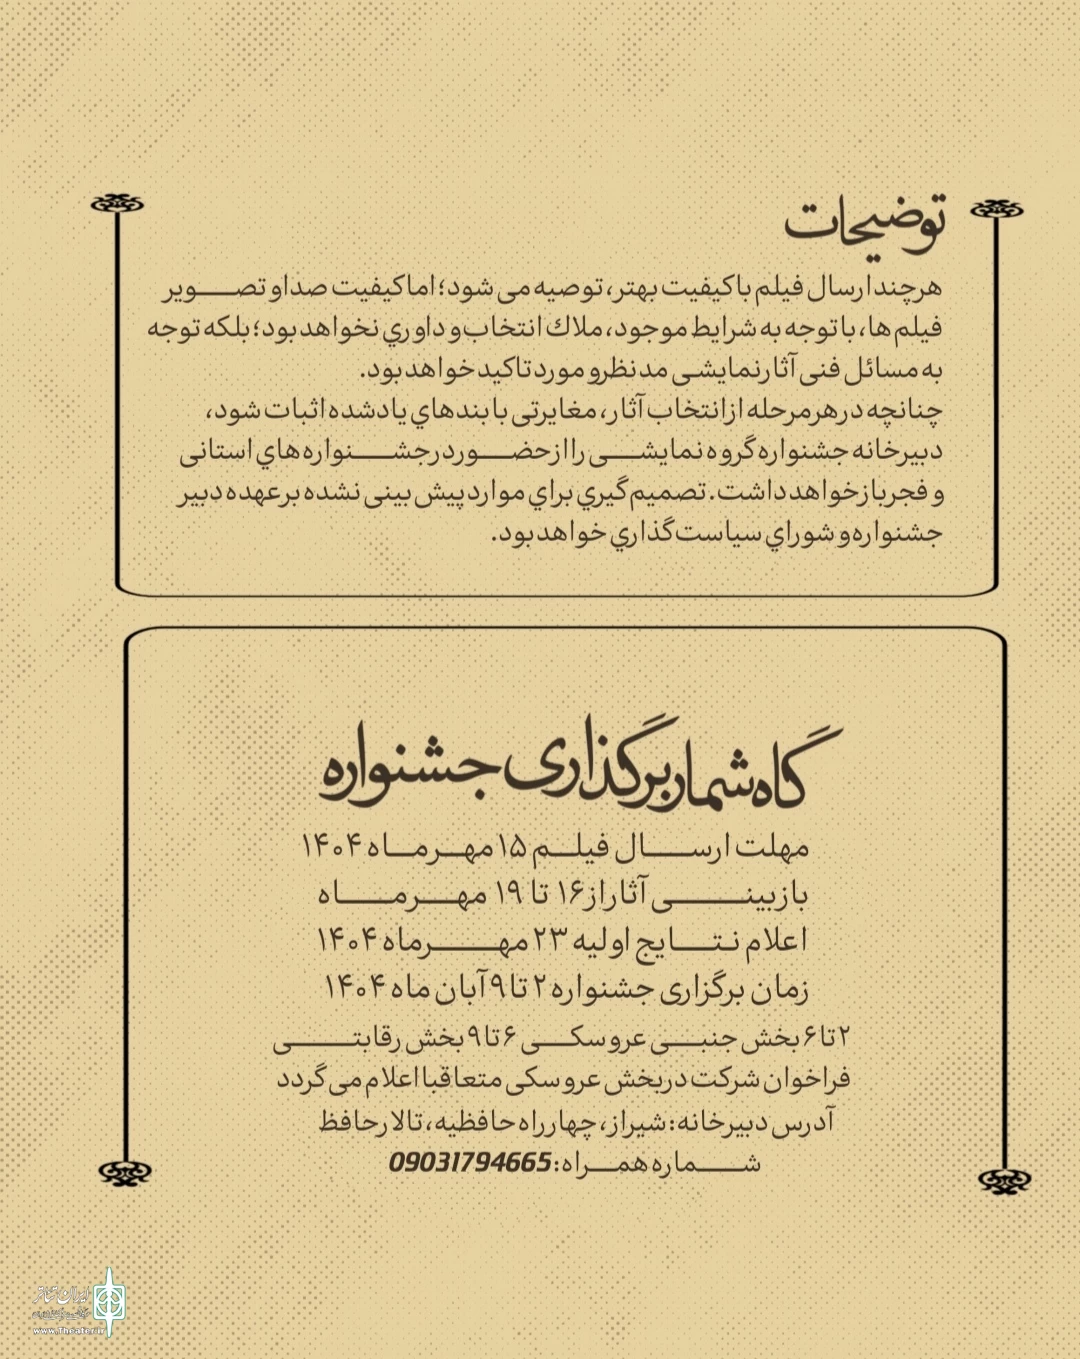 توضیحات
هرچند ارسال فیلم با کیفیت بهتر، توصیه می شود؛ اما کیفیت صدا و تصویر
فیلم ها، با توجه به شرایط موجود، ملاك انتخاب و داوري نخواهد بود؛ بلکه توجه
به مسائل فنی آثار نمایشی مد نظر و مورد تاکید خواهد بود.
چنانچه در هر مرحله از انتخاب آثار، مغایرتی با بندهاي یاد شده اثبات شود،
دبیرخانه جشنواره گروه نمایشی را از حضور در جشنواره هاي استانی
و فجر باز خواهد داشت. تصمیم گیري براي موارد پیش بینی نشده بر عهده دبیر
جشنواره و شوراي سیاست گذاري خواهد بود.
گاه شمار برگذاری جشنواره
مهلت ارسال فیلم ۱۵ مهرماه ۱۴۰۴
بازبینی آثار از ۱۶ تا ۱۹ مهرماه
اعلام نتایج اولیه ۲۳ مهرماه ۱۴۰۴
زمان برگزاری جشنواره ۲ تا ۹ آبان ماه ۱۴۰۴
۲ تا ۶ بخش جنبی عروسکی ۶ تا ۹ بخش رقابتی
فراخوان شرکت در بخش عروسکی متعاقبا اعلام می گردد
آدرس دبیرخانه: شیراز، چهارراه حافظیه، تالار حافظ
شماره همراه: 09031794665
ایران تئاتر
www.Theater.ir